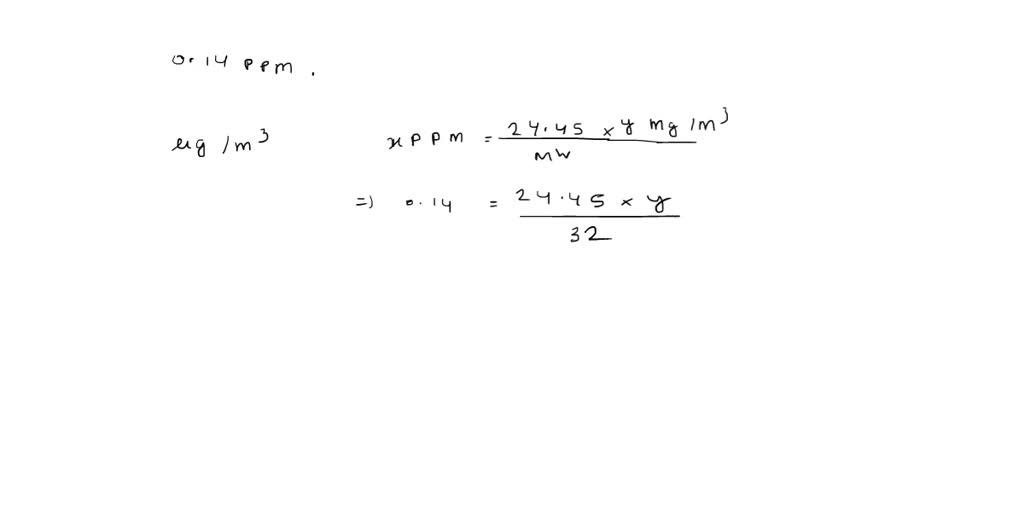 0.14 ppm.
μg/m³
x ppm = 24.45 × y mg/m³ / MW
=) 0.14 = 24.45 × y / 32